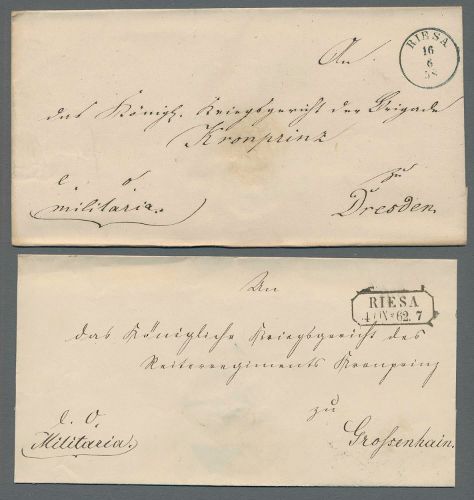 An
RIESA
16
6
58
das Königl. Kriegsgericht der Brigade
Kronprinz
e. o.
militaria.
zu
Dresden.
An
RIESA
62. 7
das Königliche Kriegsgericht des
Reiterregiments Kronprinz
e. O.
Militaria.
zu
Grossenhain.